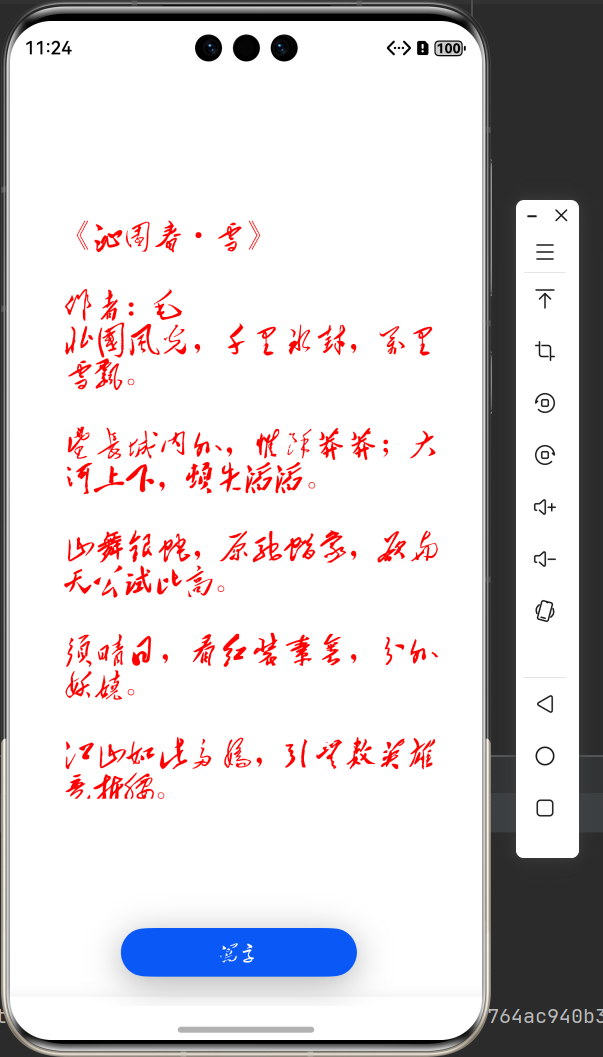 11:24
100
《沁园春·雪》
作者：毛
北國風光，千里冰封，萬里
雪飄。
望長城内外，惟餘莽莽；大
河上下，頓失滔滔。
山舞銀蛇，原馳蠟象，欲与
天公試比高。
須晴日，看紅裝素裹，分外
妖嬈。
江山如此多嬌，引無數英雄
竞折腰。
寫字
764ac940b3